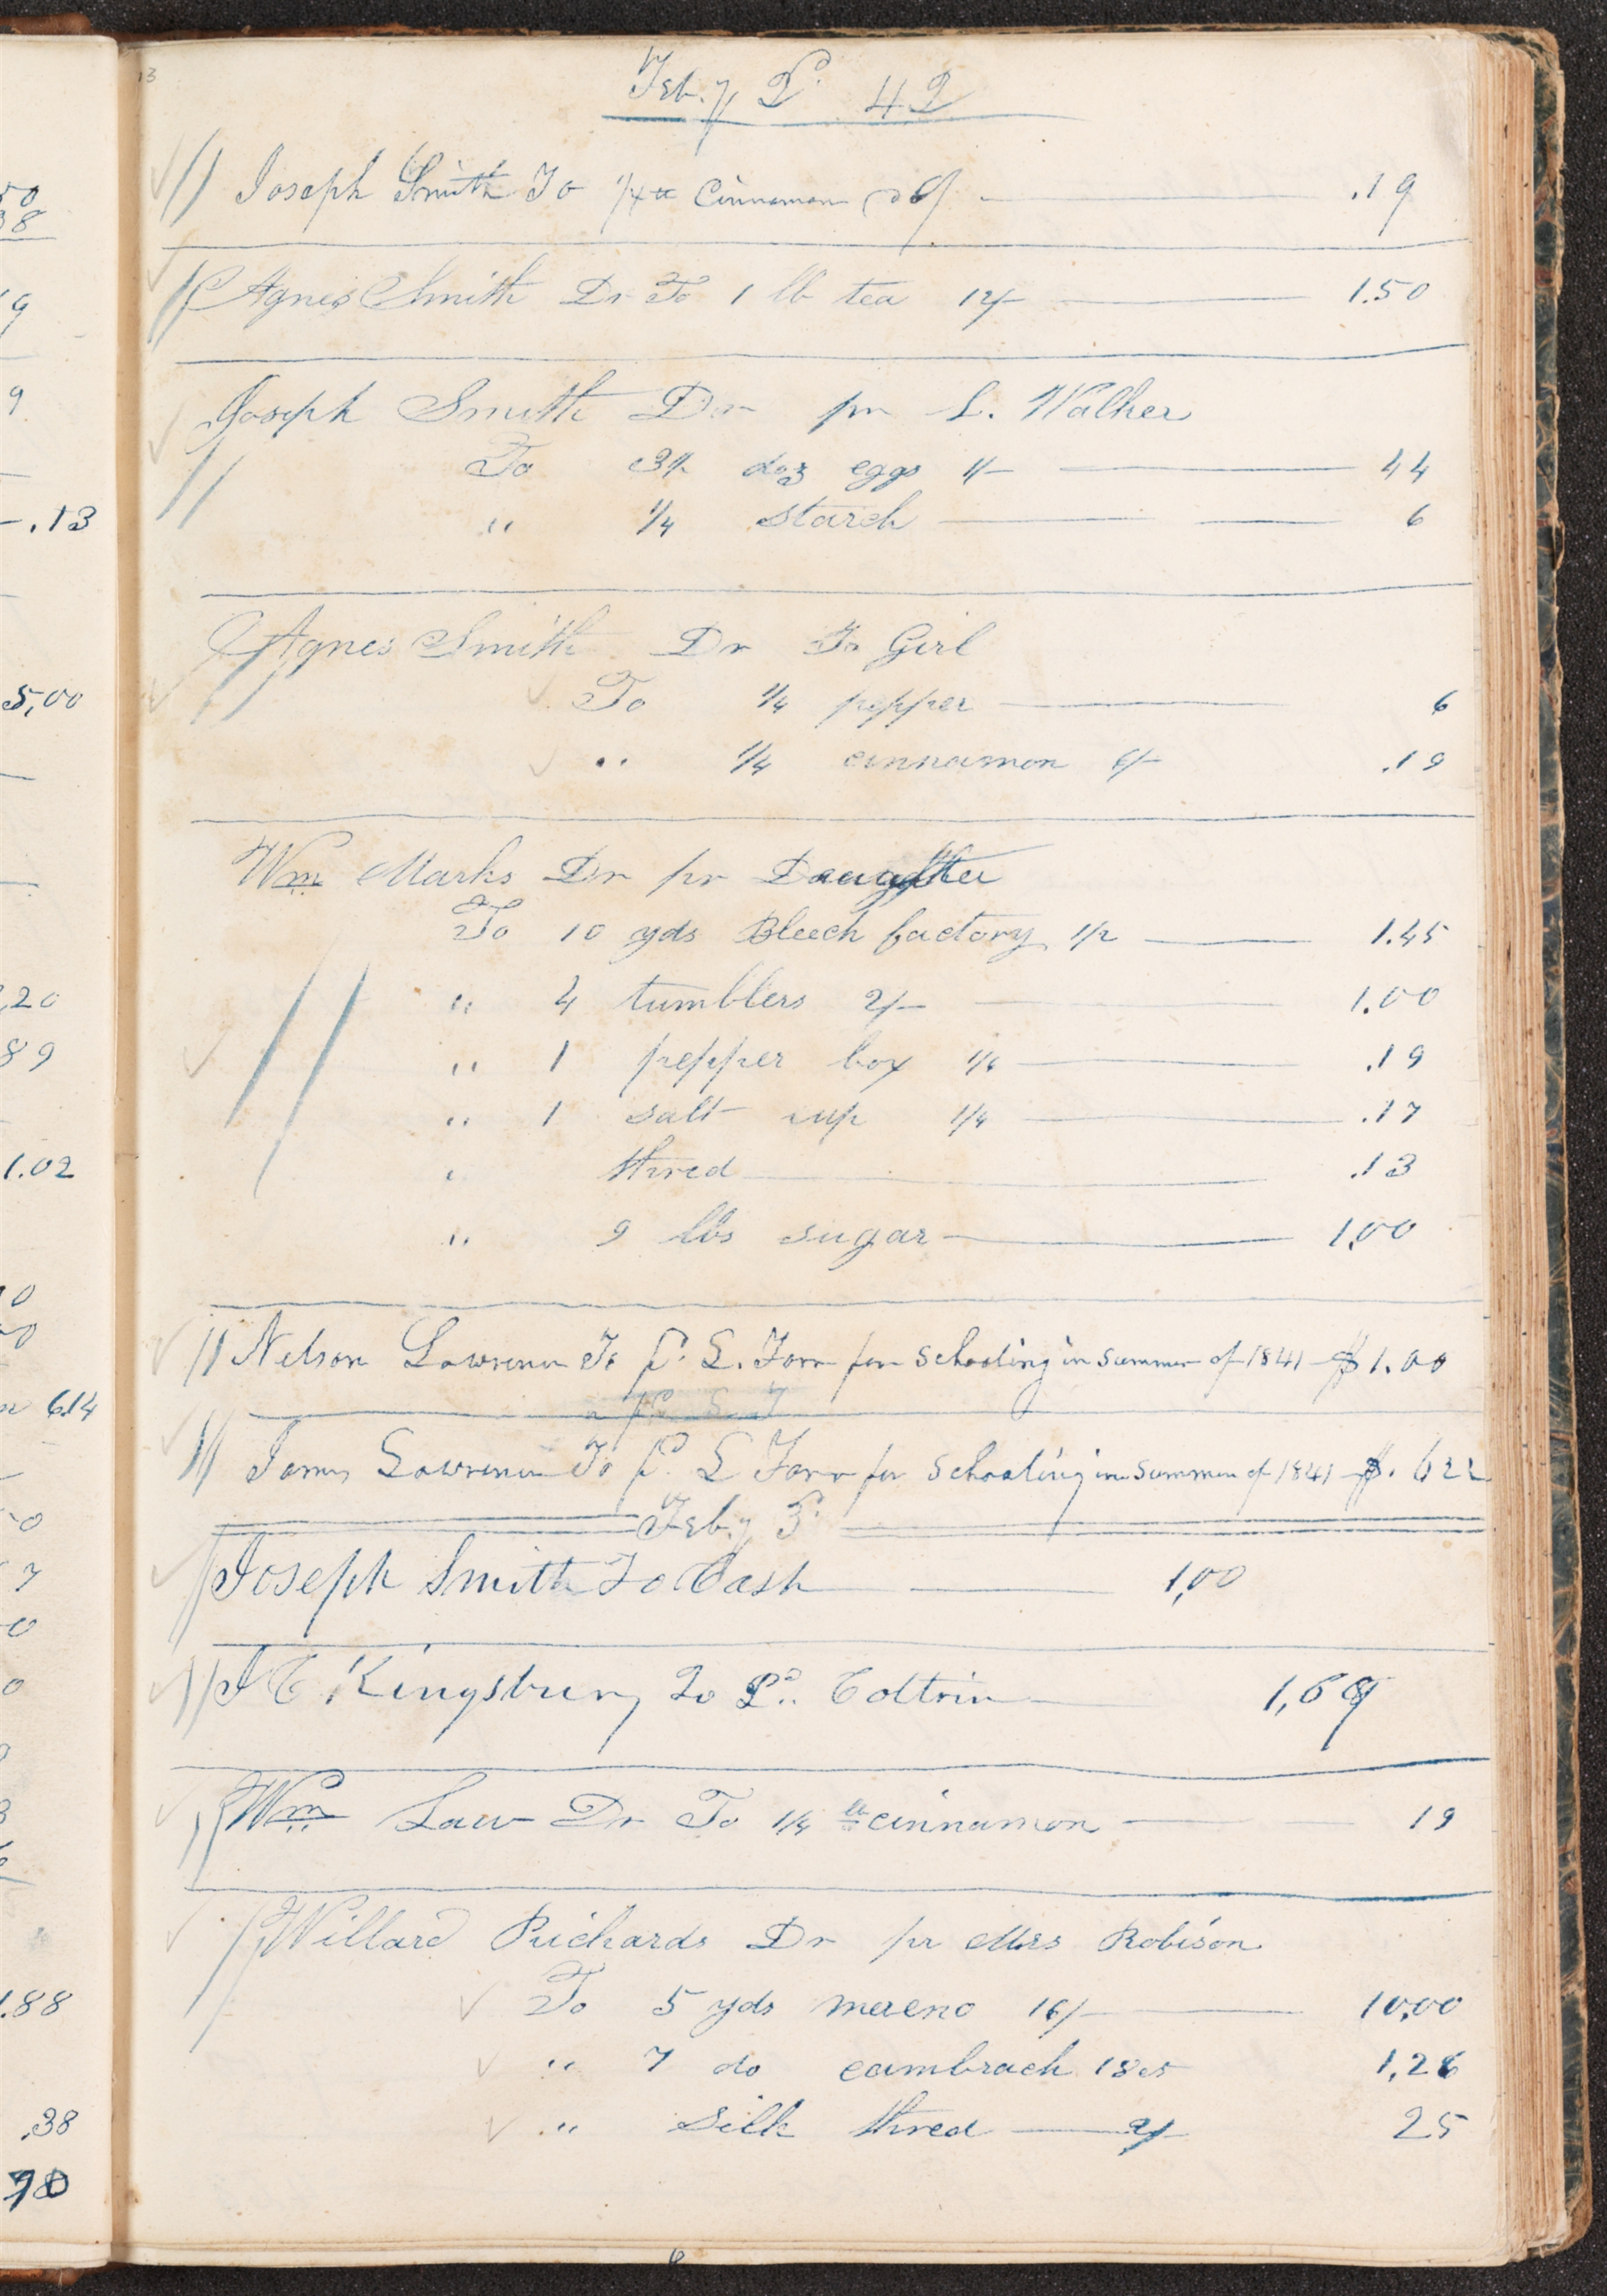 50
38
19
9
.13
5,00
,20
89
1.02
0
00
614
0
7
0
0
1.88
.38
78
13
Feb.y 2d. 42
Joseph Smith To 1/4 lb Cinnamon 6/ .19
Agnes Smith Dr To 1 lb tea 12/– 1.50
Joseph Smith Dr pr L. Walker
To 3 1/2 doz eggs 1/– 44
" 1/4 starch 6
Agnes Smith Dr Girl
To 1/4 pepper 6
" 1/4 cinnamon 6/– .19
Wm Marks Dr pr Daughter
To 10 yds Bleech factory 1/2 1.45
" 4 tumblers 2/– 1.00
" 1 pepper box 1/6 .19
" 1 salt cup 1/4 .17
" thred .13
" 9 lbs sugar 1,00
Nelson Lawrence To P. L. Farr for Schooling in Summer of 1841 $1.00
James Lawrence To P. L Farr for Schooling in Summer of 1841 $.622
Feb.y 3d.
Joseph Smith To Cash 1,00
J C Kingsbury To Coltrin 1,69
Wm Law Dr To 1/4 lb cinnamon 19
Willard Richards Dr pr Mrs Robison
To 5 yds mereno 16/– 10,00
" 7 do cambrach 18cs 1,26
" Silk thred 2/– 25